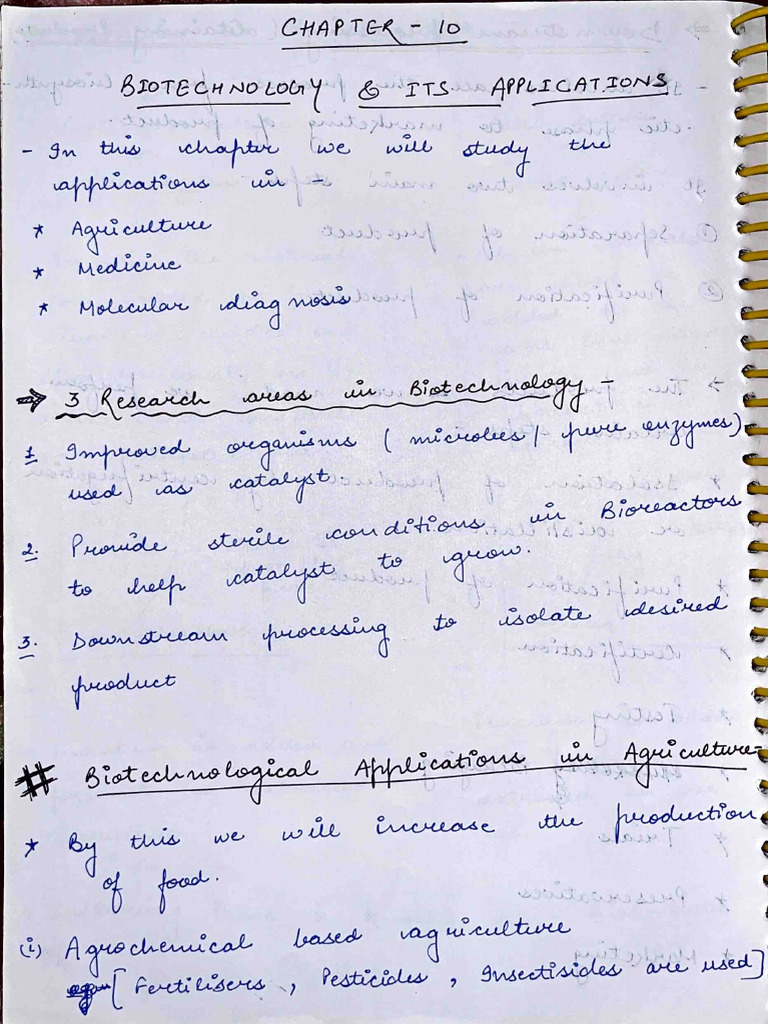 CHAPTER - 10
BIOTECHNOLOGY & ITS APPLICATIONS
- In this chapter we will study the
applications in -
* Agriculture
* Medicine
* Molecular diagnosis
⇒ 3 Research areas in Biotechnology -
1 Improved organisms ( microbes / pure enzymes)
used as catalyst
2. Provide sterile conditions in Bioreactors
to help catalyst to grow.
3. Downstream processing to isolate desired
product
# Biotechnological Applications in Agriculture-
* By this we will increase the production
of food.
(i) Agrochemical based agriculture
[ Fertilisers , Pesticides , Insectisides are used]